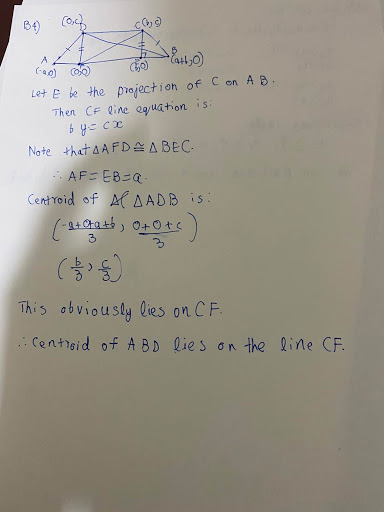 B4) (0,c) C(b,c)
D
A B
(-a,0) (0,0) (b,0) (a+b,0)
Let E be the projection of C on AB.
Then CF line equation is:
by = cx
Note that △AFD ≅ △BEC.
∴ AF = EB = a.
Centroid of △ADB is:
(-a+0+a+b/3, 0+0+c/3)
(b/3, c/3)
This obviously lies on CF.
∴ Centroid of ABD lies on the line CF.